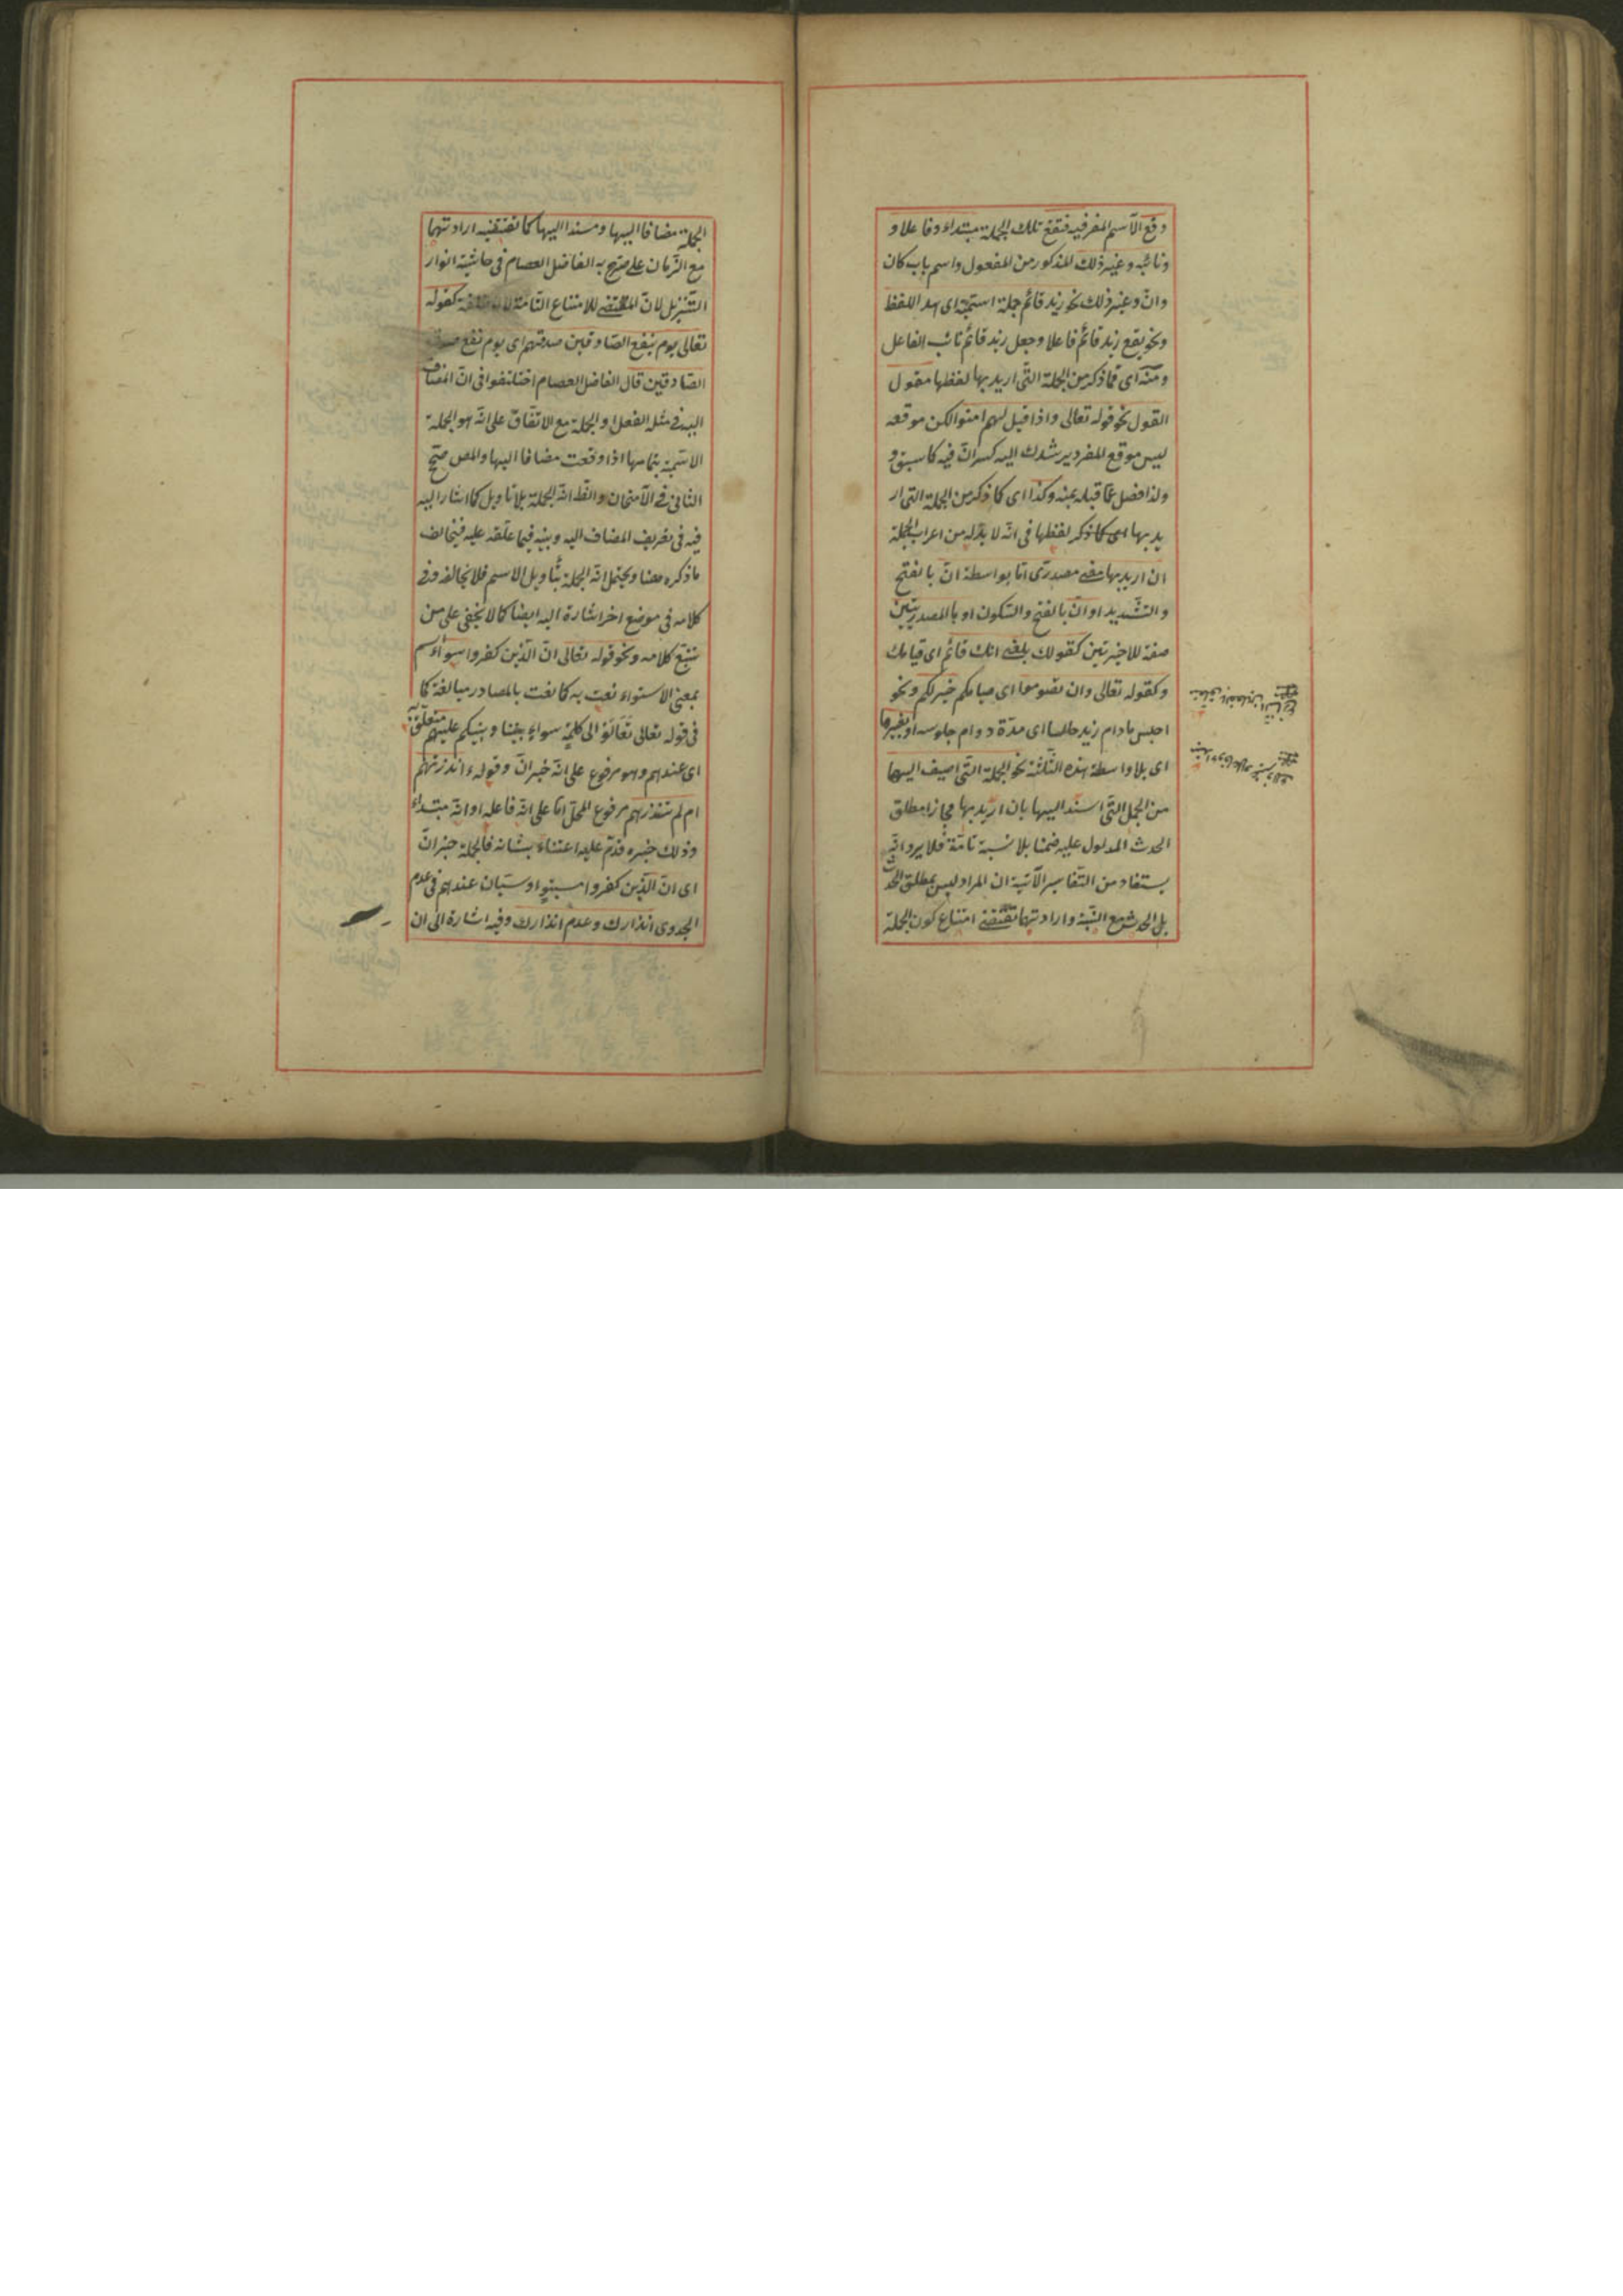 وقع الاسم المفرد فيه فتقع تلك الجملة مبتداء وفاعلا و
ونائبه وغير ذلك المذكور من المفعول واسم باب كان
وان وغير ذلك نحو زيد قائم جملة اسمية اى هذا اللفظ
ونحو يقع زيد قائم فاعلا وجعل زيد قائم نائب الفاعل
ومنه اى مما ذكر من الجملة التى اريد بها لفظها مقول
القول نحو قوله تعالى واذا قيل لهم امنوا لكن موقعه
ليس موقع المفرد يرشدك اليه كسر ان فيه كما سبق و
ولذا فصل عما قبله بمنه وكذا اى كما ذكر من الجملة التى ار
يد بها لفظها فى انه لا بد له من اعراب الجملة
ان اريد بها معنى مصدرى اما بواسطة ان بالفتح
والتشديد او ان بالفتح والسكون او بالمصدريتين
صفة للاخيرتين كقولك بلغنى انك قائم اى قيامك
وكقوله تعالى وان تصوموا اى صيامكم خير لكم ونحو
اجلس مادام زيد جالسا اى مدة دوام جلوسه او بغيرها
اى بلا واسطة هذه الثلثة نحو الجملة التى اضيف اليها
من الجمل التى اسند اليها بان اريد بها مجازا مطلق
الحدث المدلول عليه ضمنا بلا نسبة تامة فلا يرد انه
يستفاد من التفاسير الآتية ان المراد ليس بمطلق الحدث
بل الحدث مع النسبة وارادتها تقتضى امتناع كون الجملة
الجملة مضافا اليها ومسندا اليها كما تقتضيه ارادتهما
مع الزمان على ما صرح به الفاضل العصام فى حاشية انوار
التنزيل لان المقتضى للامتناع التامة لا كقوله
تعالى يوم ينفع الصادقين صدقهم اى يوم نفع صدق
الصادقين قال الفاضل العصام اختلفوا فى ان المضاف
اليه فى مثله الفعل او الجملة مع الاتفاق على انه هو الجملة
الاسمية بتمامها اذا وقعت مضافا اليها والمص صحح
الثانى فى الامتحان والظ انه الجملة بلا تاويل كما اشار اليه
فيه فى تعريف المضاف اليه وبينه فيما علقه عليه فيخالف
ما ذكره هنا ويحتمل انه الجملة بتاويل الاسم فلا يخالفه وفى
كلامه فى موضع اخر اشارة اليه ايضا كما لا يخفى على من
تتبع كلامه ونحو قوله تعالى ان الذين كفروا سواء اسم
بمعنى الاستواء نعت به كما نعت بالمصادر مبالغة كما
فى قوله تعالى تعالوا الى كلمة سواء بيننا وبينكم عليهم متعلق به
اى عندهم وهو مرفوع على انه خبر ان وقوله ء انذرتهم
ام لم تنذرهم مرفوع المحل اما على انه فاعله او انه مبتداء
وذلك خبره قدم عليه اعتناء بشانه فالجملة خبر ان
اى ان الذين كفروا مستو او سيان عندهم فى عدم
الجدوى انذارك وعدم انذارك وفيه اشارة الى ان